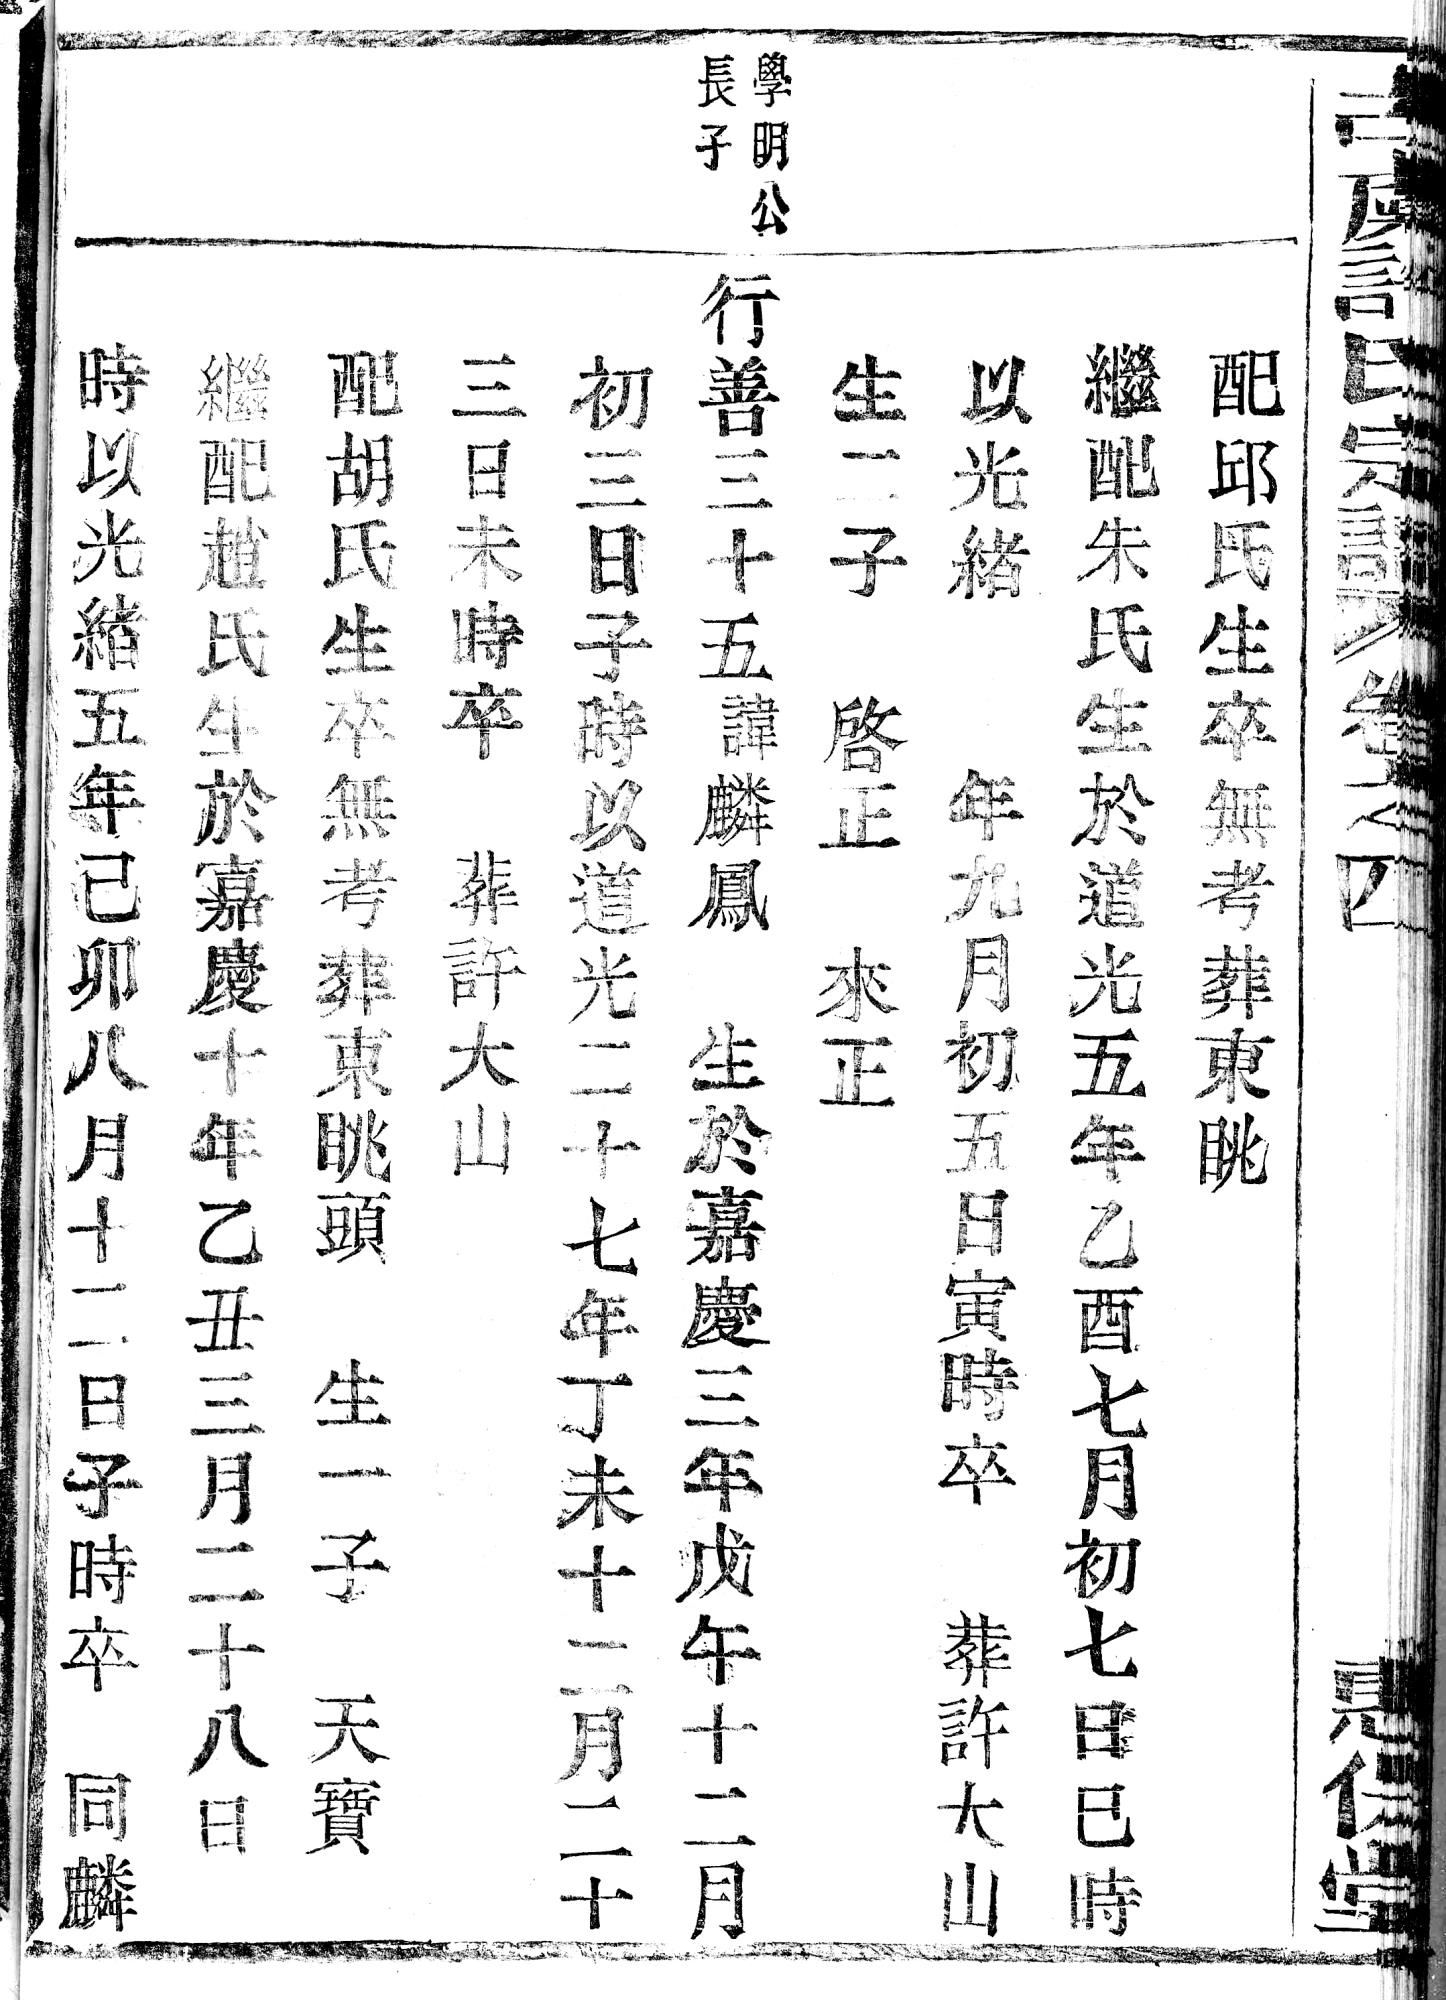 氏宗譜卷之四
堂
配邱氏生卒無考葬東眺
繼配朱氏生於道光五年乙酉七月初七日巳時
以光緒 年九月初五日寅時卒 葬許大山
生二子 啓正 來正
學明公
長子
行善三十五諱麟鳳 生於嘉慶三年戊午十二月
初三日子時以道光二十七年丁未十二月二十
三日未時卒 葬許大山
配胡氏生卒無考葬東眺頭 生一子 天寶
繼配趙氏生於嘉慶十年乙丑三月二十八日
時以光緒五年己卯八月十二日子時卒 同麟